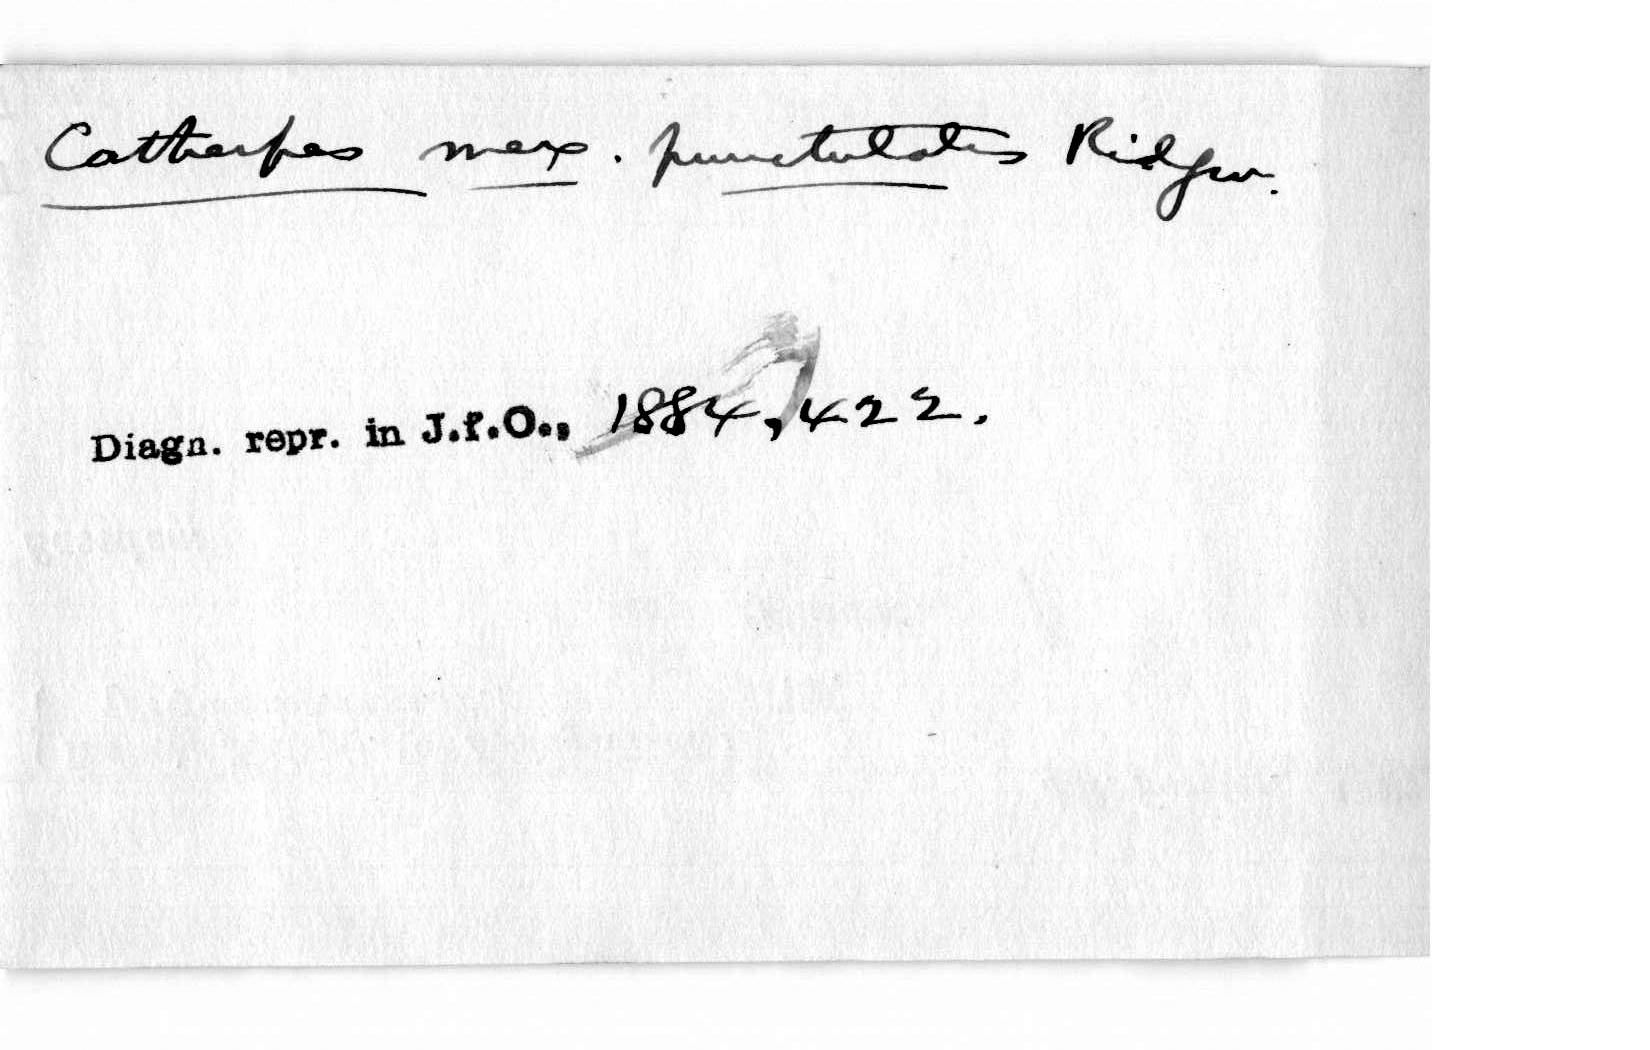 Catherpes mex. punctulatus Ridgw.
Diagn. repr. in J.f.O., 1884, 422.